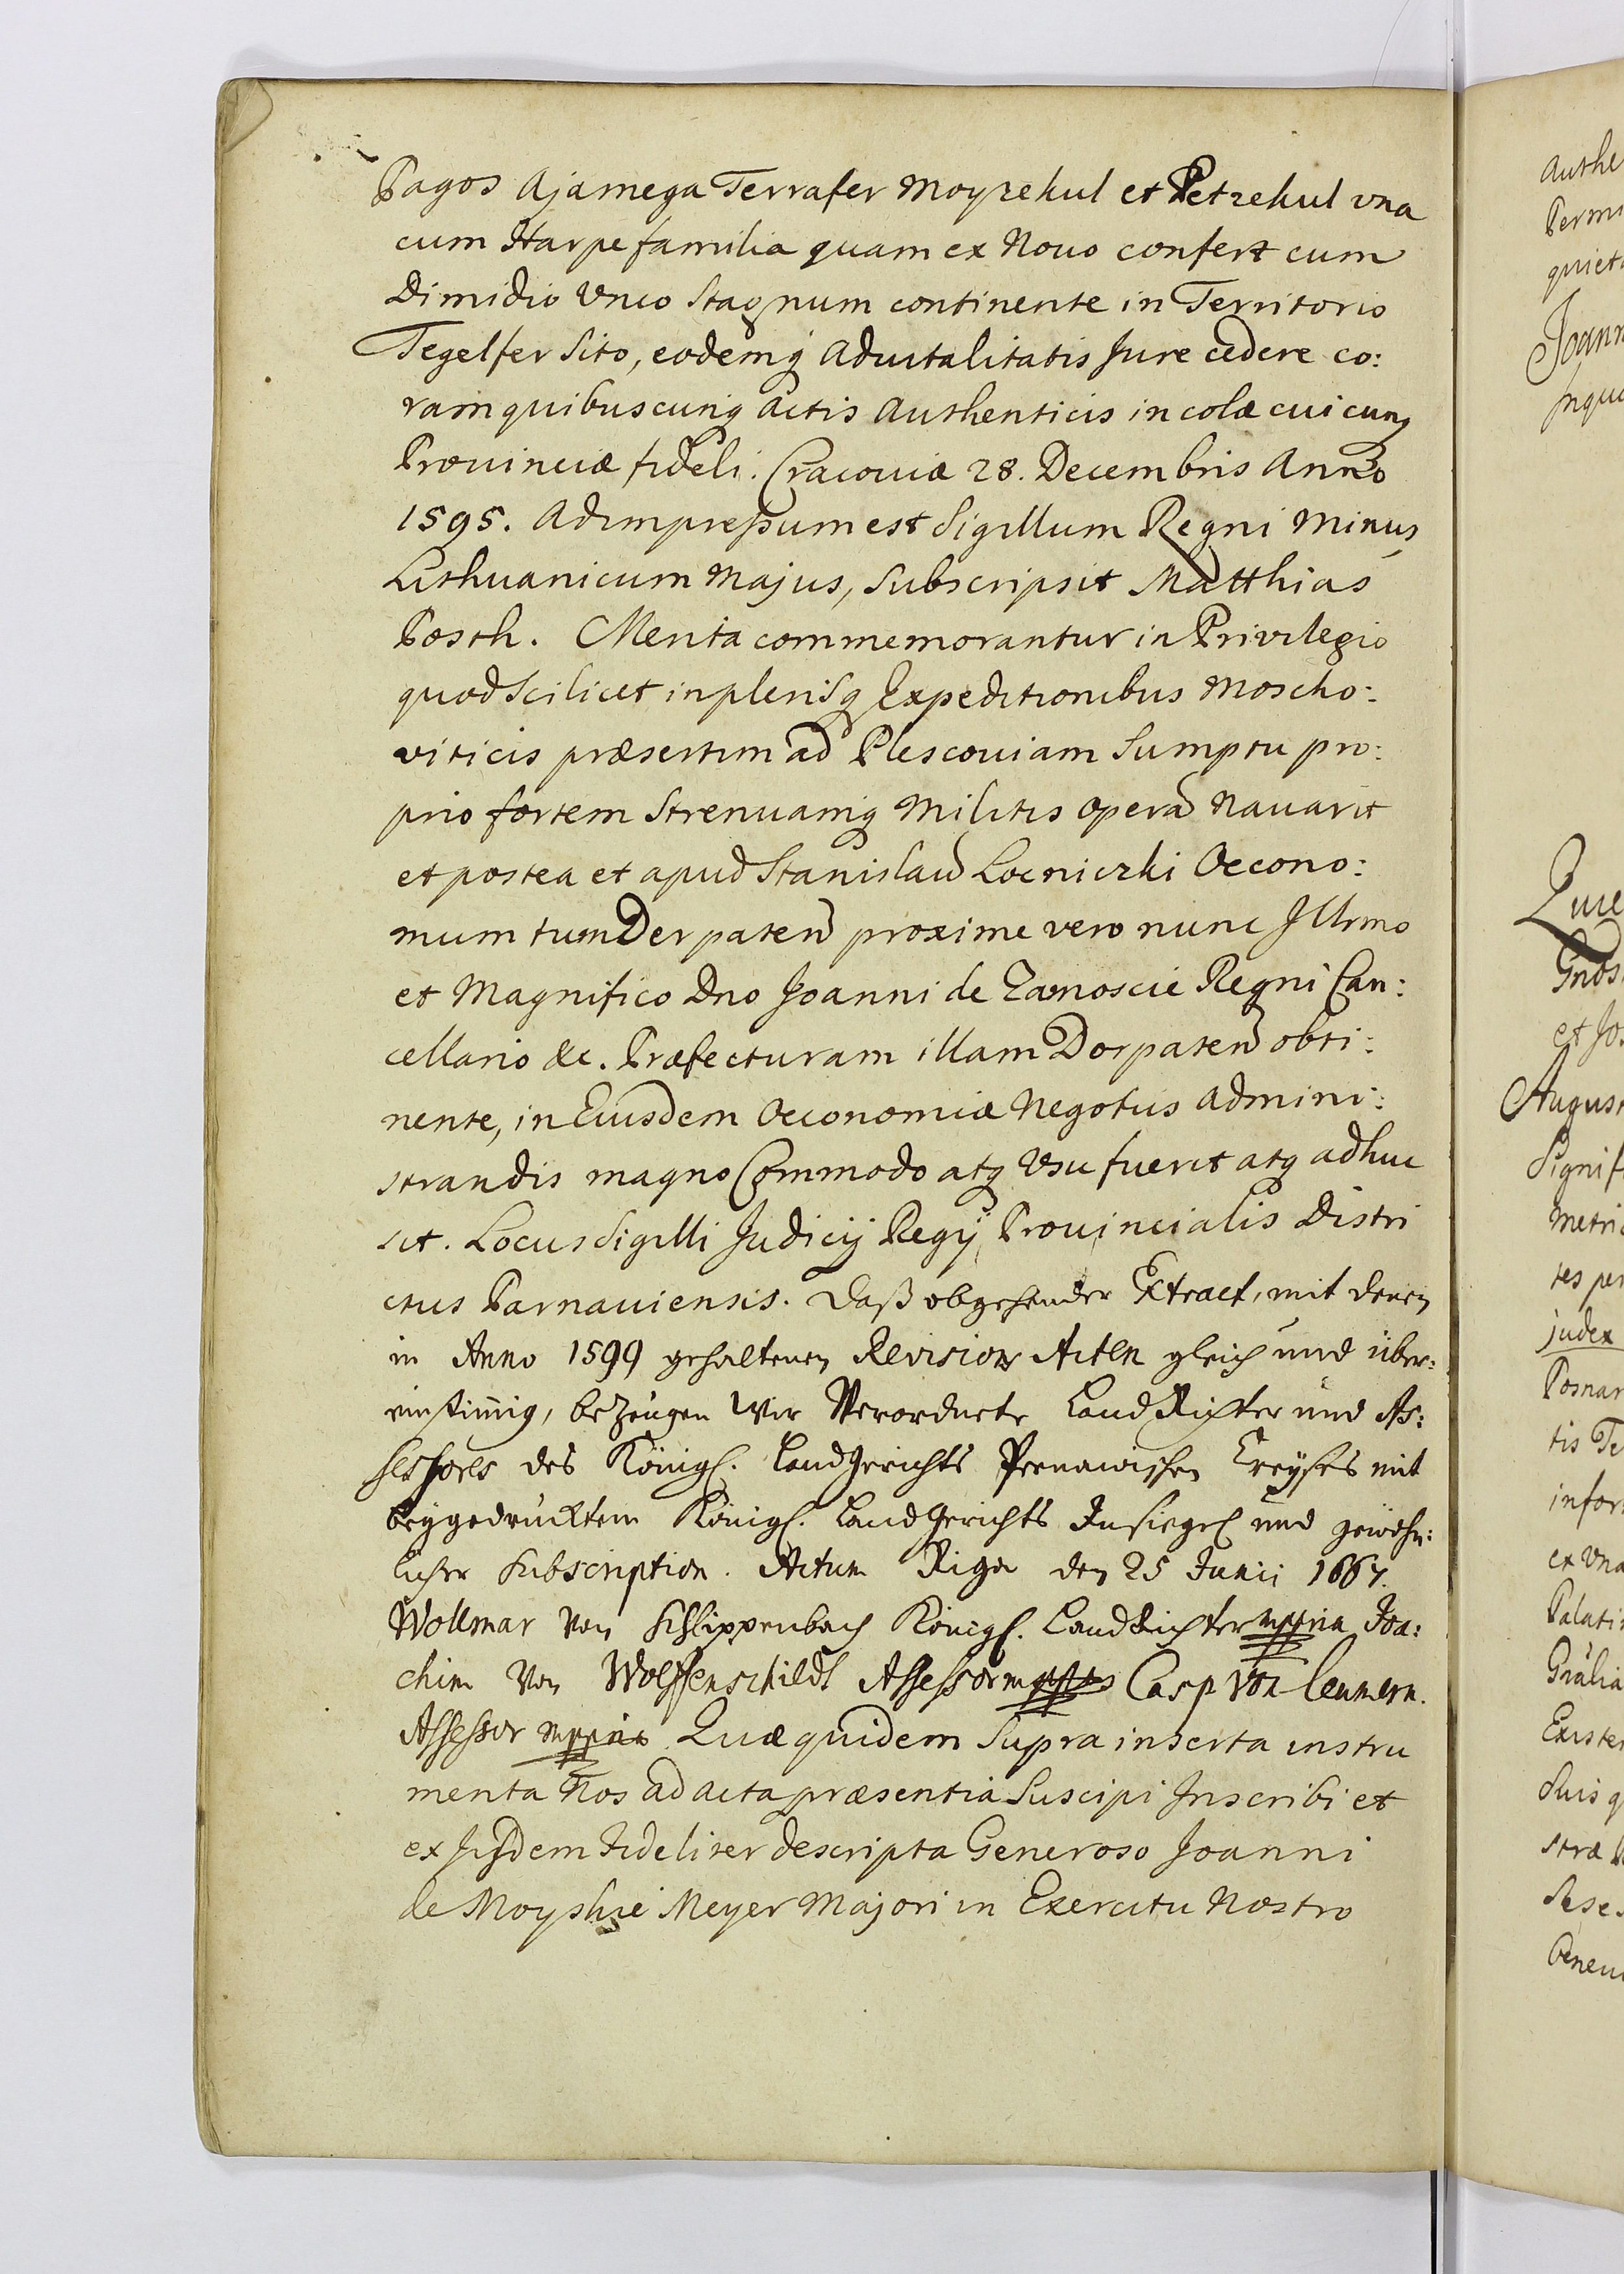 Pagos Ajamega Terrafer Moyzekul et Petzekul vna
cum Harpe familia quam ex Nouo confert cum
Dimidio Vnco Stagnum continente in Territorio
Tegelfer Sito, eodemq aduitalitatis Jure cedere co:
ram quibuscunq actis authenticis incolæ cuicunq
Prouinciæ fideli. Cracouiæ 28. Decembris Anno
1595. Adimpreßum est Sigillum Regni Minus,
Lithuanicum Majus, Subscripsit Matthias
Posth. Merita commemorantur in Privilegio
quod Scilicet in plerisq Expeditionibus Moscho:
viticis præsertim ad Plescouiam Sumptu pro:
prio fortem Strenuamq Militis opera Nauarit
et postea et apud Stanislau Locniczki Oecono:
mum tum Derpaten proxime vero nunc Jllrmo
et Magnifico Dno Joanni de Zamoscie Regni Can:
cellario &c. Præfecturam illam Dorpaten obti:
nente, in Eiusdem Oeconomiæ Negotijs admini:
strandis magno Commodo atq Vsu fuerit atq adhuc
sit. Locus Sigilli Judicij Regij Prouincialis Distri
ctus Parnauiensis. Daß obgehender Extract, mit denen
in Anno 1599 gehaltenen Revisions Acten gleich und über:
einstimig, bezeugen Wir Verordnete LandRichter und As:
sessores des Königl. LandGerichts Pernawischen Creyses mit
beygedrucktem Königl. LandGerichts Insiegel und gewöhn:
licher Subscription. Actum Riga den 25 Junii 1667.
Wollmar von Schlippenbach Königl. LandRichter mppria Joa:
chim von Wolffenschildt Assessor mppria Casp von Ceumern.
Assessor mppria Quæ quidem Supra inserta instru
menta Nos ad acta præsentia Suscipi Inscribi et
ex Jisdem fideliter descripta Generoso Joanni
de Moyshie Meyer Majori in Exercitu Nostro
authe
Permi
quiet
Joann
Jnqu
et Jo
August
Signif
Metri
tes per
judex
Posnan
tis Te
infor
ex vna
Palati
Exister
Suis q
stræ
sese